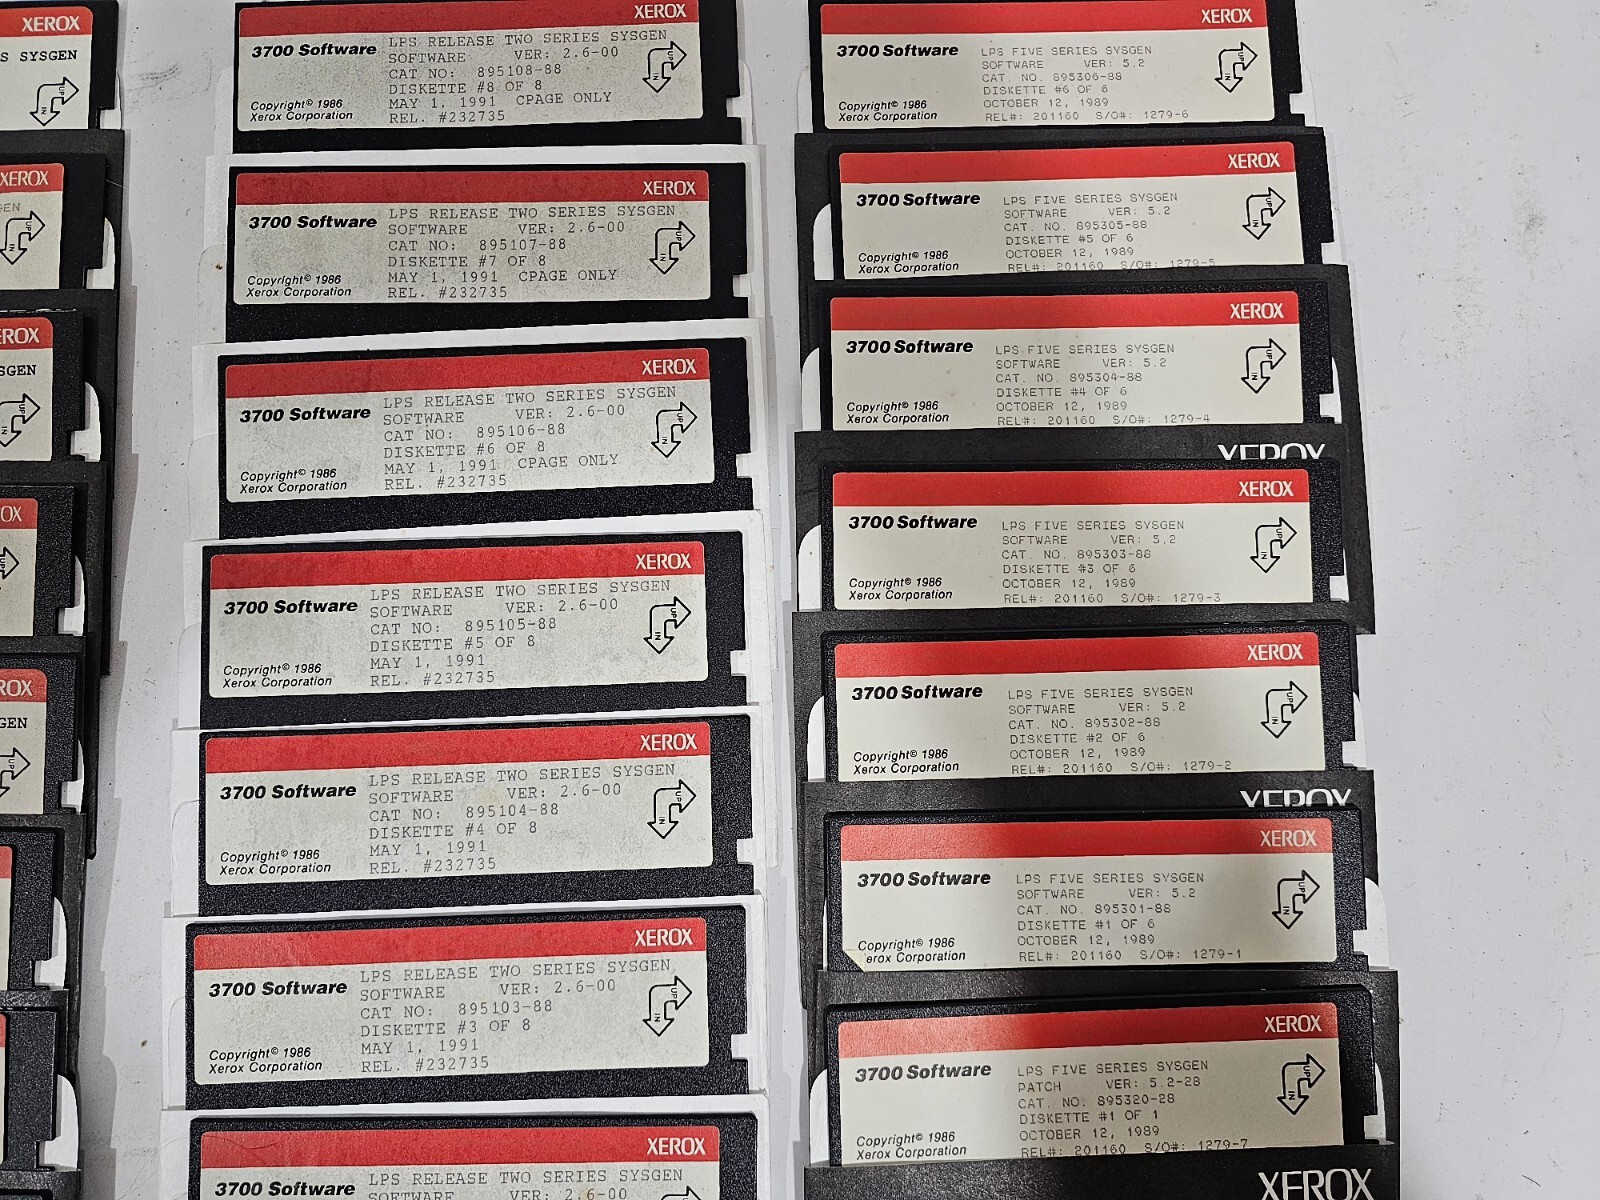 XEROX
S SYSGEN
UP
IN
XEROX
GEN
UP
IN
EROX
SGEN
UP
IN
OX
UP
IN
ROX
GEN
UP
IN
XEROX
3700 Software
LPS RELEASE TWO SERIES SYSGEN
SOFTWARE VER: 2.6-00
CAT NO: 895108-88
DISKETTE #8 OF 8
MAY 1, 1991 CPAGE ONLY
REL. #232735
Copyright© 1986
Xerox Corporation
UP
IN
XEROX
3700 Software
LPS RELEASE TWO SERIES SYSGEN
SOFTWARE VER: 2.6-00
CAT NO: 895107-88
DISKETTE #7 OF 8
MAY 1, 1991 CPAGE ONLY
REL. #232735
Copyright© 1986
Xerox Corporation
UP
IN
XEROX
3700 Software
LPS RELEASE TWO SERIES SYSGEN
SOFTWARE VER: 2.6-00
CAT NO: 895106-88
DISKETTE #6 OF 8
MAY 1, 1991 CPAGE ONLY
REL. #232735
Copyright© 1986
Xerox Corporation
UP
IN
XEROX
3700 Software
LPS RELEASE TWO SERIES SYSGEN
SOFTWARE VER: 2.6-00
CAT NO: 895105-88
DISKETTE #5 OF 8
MAY 1, 1991
REL. #232735
Copyright© 1986
Xerox Corporation
UP
IN
XEROX
3700 Software
LPS RELEASE TWO SERIES SYSGEN
SOFTWARE VER: 2.6-00
CAT NO: 895104-88
DISKETTE #4 OF 8
MAY 1, 1991
REL. #232735
Copyright© 1986
Xerox Corporation
UP
IN
XEROX
3700 Software
LPS RELEASE TWO SERIES SYSGEN
SOFTWARE VER: 2.6-00
CAT NO: 895103-88
DISKETTE #3 OF 8
MAY 1, 1991
REL. #232735
Copyright© 1986
Xerox Corporation
UP
IN
XEROX
3700 Software
LPS RELEASE TWO SERIES SYSGEN
SOFTWARE VER: 2.6-00
XEROX
3700 Software
LPS FIVE SERIES SYSGEN
SOFTWARE VER: 5.2
CAT. NO. 895306-88
DISKETTE #6 OF 6
OCTOBER 12, 1989
REL#: 201160 S/O#: 1279-6
Copyright© 1986
Xerox Corporation
UP
IN
XEROX
3700 Software
LPS FIVE SERIES SYSGEN
SOFTWARE VER: 5.2
CAT. NO. 895305-88
DISKETTE #5 OF 6
OCTOBER 12, 1989
REL#: 201160 S/O#: 1279-5
Copyright© 1986
Xerox Corporation
UP
IN
XEROX
3700 Software
LPS FIVE SERIES SYSGEN
SOFTWARE VER: 5.2
CAT. NO. 895304-88
DISKETTE #4 OF 6
OCTOBER 12, 1989
REL#: 201160 S/O#: 1279-4
Copyright© 1986
Xerox Corporation
UP
IN
XEROX
XEROX
3700 Software
LPS FIVE SERIES SYSGEN
SOFTWARE VER: 5.2
CAT. NO. 895303-88
DISKETTE #3 OF 6
OCTOBER 12, 1989
REL#: 201160 S/O#: 1279-3
Copyright© 1986
Xerox Corporation
UP
IN
XEROX
3700 Software
LPS FIVE SERIES SYSGEN
SOFTWARE VER: 5.2
CAT. NO. 895302-88
DISKETTE #2 OF 6
OCTOBER 12, 1989
REL#: 201160 S/O#: 1279-2
Copyright© 1986
Xerox Corporation
UP
IN
XEROX
XEROX
3700 Software
LPS FIVE SERIES SYSGEN
SOFTWARE VER: 5.2
CAT. NO. 895301-88
DISKETTE #1 OF 6
OCTOBER 12, 1989
REL#: 201160 S/O#: 1279-1
Copyright© 1986
erox Corporation
UP
IN
XEROX
3700 Software
LPS FIVE SERIES SYSGEN
PATCH VER: 5.2-28
CAT. NO. 895320-28
DISKETTE #1 OF 1
OCTOBER 12, 1989
REL#: 201160 S/O#: 1279-7
Copyright© 1986
Xerox Corporation
UP
IN
XEROX